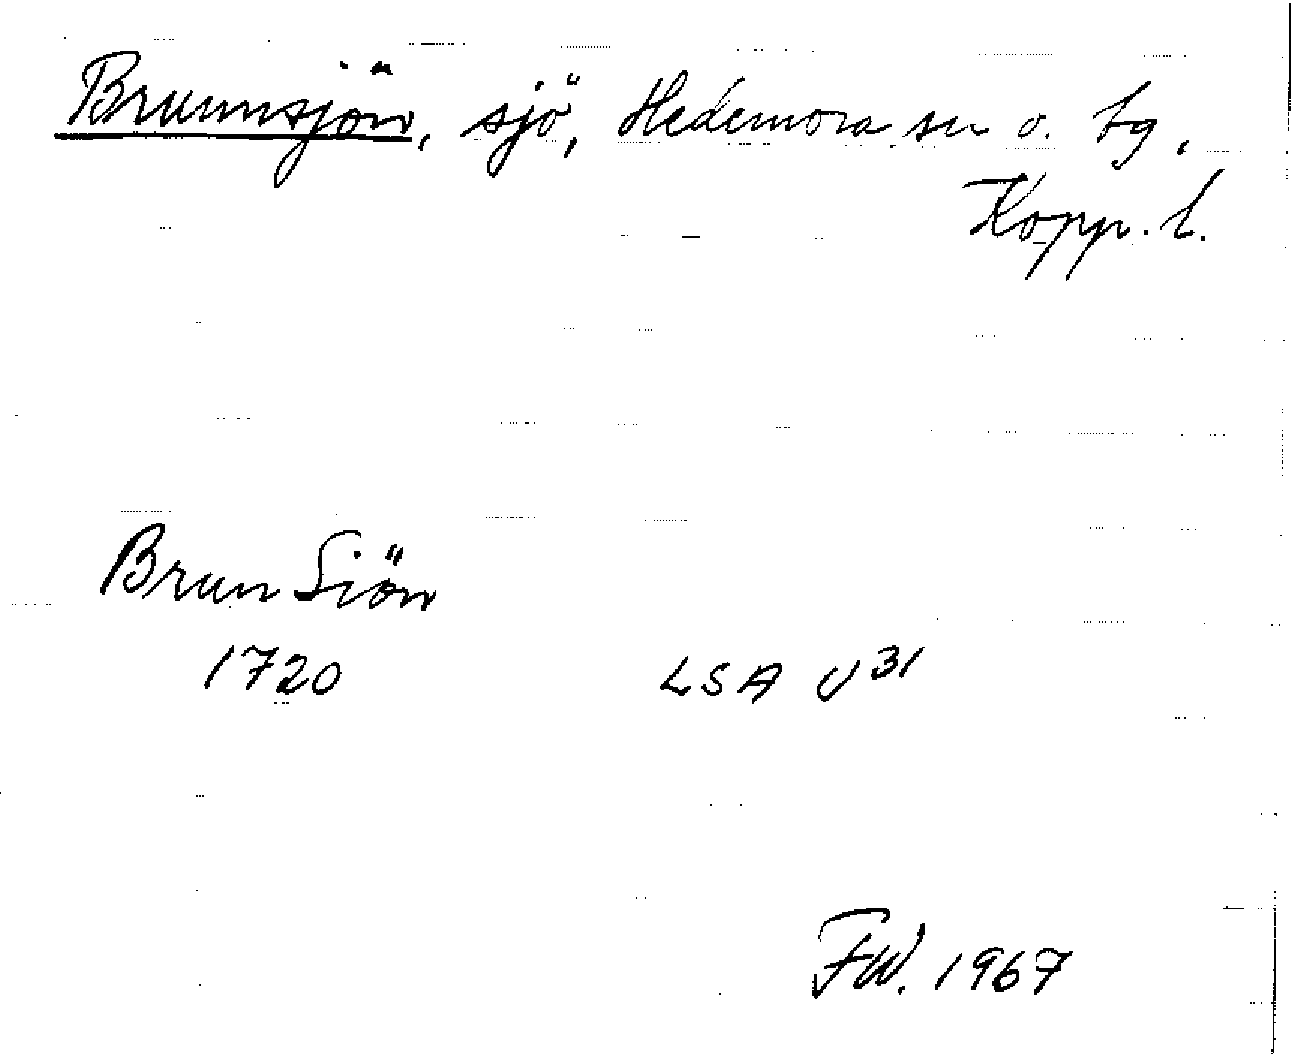 Brunnsjön, sjö, Hedemora sn o. tg,
Kopp. l.
Brun Siön
1720 LSA U31
FW. 1967